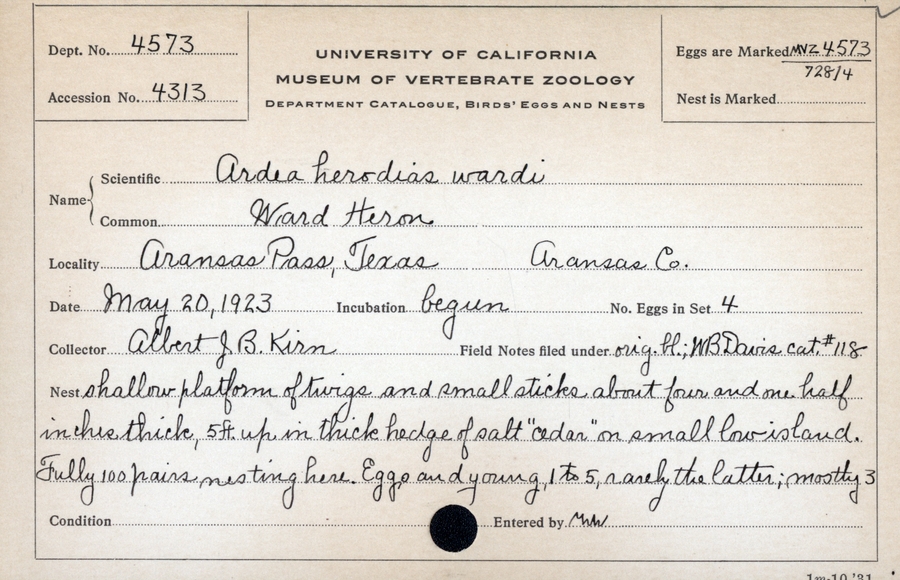 Dept. No. 4573
Accession No. 4313
UNIVERSITY OF CALIFORNIA
MUSEUM OF VERTEBRATE ZOOLOGY
DEPARTMENT CATALOGUE, BIRDS' EGGS AND NESTS
Eggs are Marked MVZ 4573
728/4
Nest is Marked
Name
Scientific Ardea herodias wardi
Common Ward Heron
Locality Aransas Pass, Texas Aransas Co.
Date May 20, 1923 Incubation begun No. Eggs in Set 4
Collector Albert J. B. Kirn Field Notes filed under orig. bl.; WB Davis cat. #118
Nest shallow platform of twigs and small sticks about four and one half
inches thick, 5 ft. up in thick hedge of salt "cedar" on small low island.
Fully 100 pairs nesting here. Eggs and young, 1 to 5, rarely the latter; mostly 3
Condition Entered by
1m-10,'31